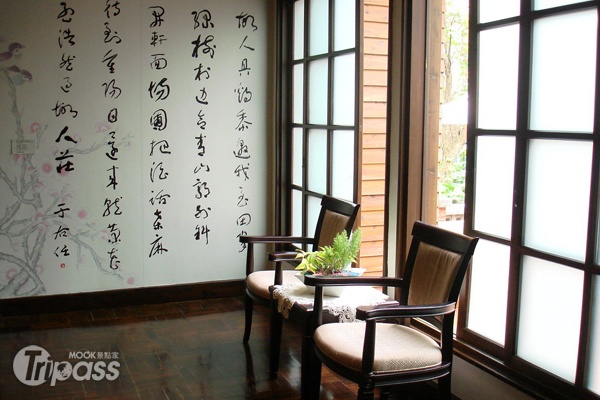 故人具鷄黍邀我至田家
綠樹村邊合青山郭外斜
開軒面場圃把酒話桑麻
待到重陽日還來就菊花
孟浩然過故人莊
于右任
MOOK景點家
Tripass